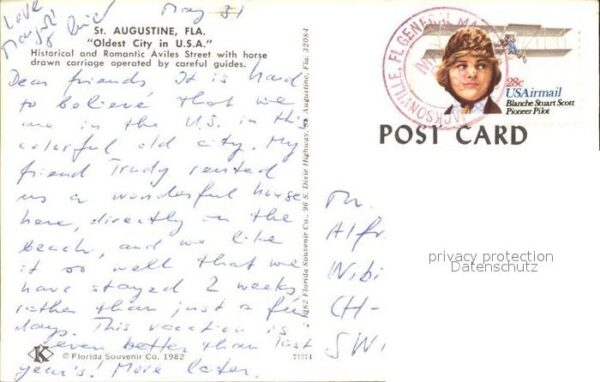 Love May 31
St. AUGUSTINE, FLA.
"Oldest City in U.S.A."
Historical and Romantic Aviles Street with horse
drawn carriage operated by careful guides.
Dear friends It is hard
to believe that we
are in the U.S. in this
colorful old city. My
friend Trudy rented
us a wonderful house
here, directly on the
beach, and we like
it so well that we
have stayed 2 weeks
rather than just a few
days. This vacation is
even better than last
year's! More later.
K
© Florida Souvenir Co. 1982
© 1982 Florida Souvenir Co., 96 S. Dixie Highway, St. Augustine, Fla. 32084
JACKSONVILLE, FL GENERAL MA
28c
USAirmail
Blanche Stuart Scott
Pioneer Pilot
POST CARD
Alfr
Nibi
CH-
SWI
privacy protection
Datenschutz